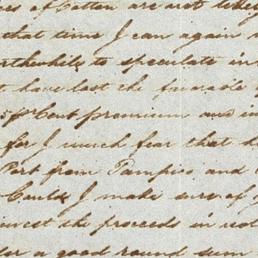 of Cotton are not likely
that time I can again
worthwhile to speculate in
have lost the favorable
pr Cent premium and in
for I much fear that
Port from Tampico and
Could I make sure of
invest the proceeds in
a good round sum